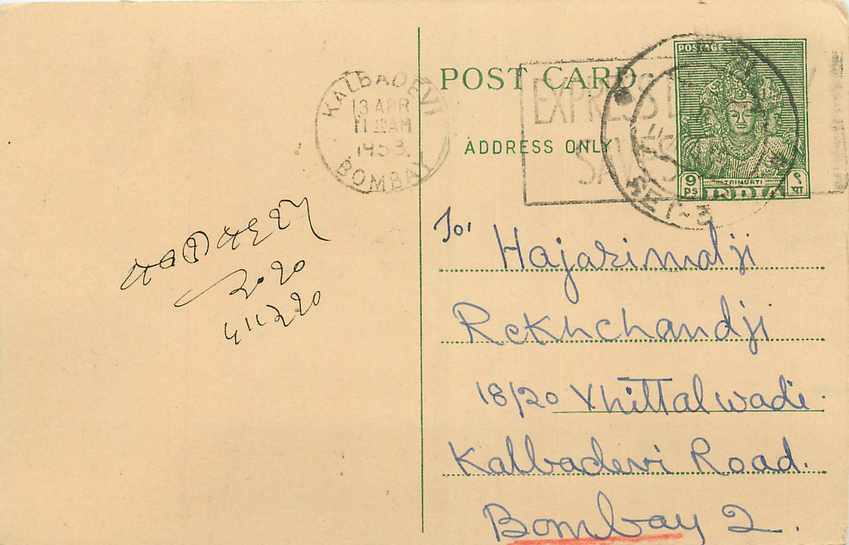 POST CARD
ADDRESS ONLY
KALBADEVI
13 APR
11 AM
1953
BOMBAY
EXPRESS
POSTAGE
TRIMURTI
9 PS
INDIA
To,
Hajarimalji
Rekhchandji
18/20 Vhittalwadi.
Kalbadevi Road.
Bombay 2.